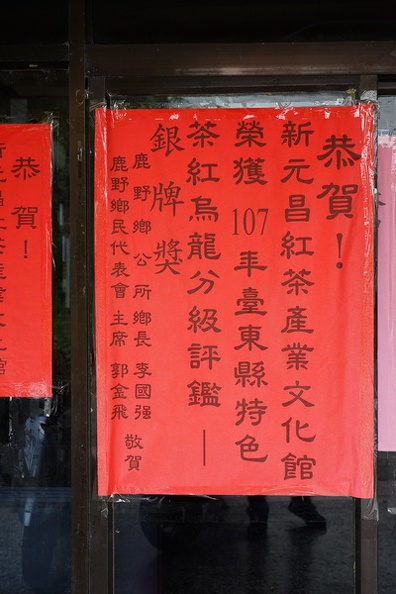 恭賀！
新元昌紅茶產業文化館
榮獲107年臺東縣特色
茶紅烏龍分級評鑑—
銀牌獎
鹿野鄉公所鄉長 李國強
鹿野鄉民代表會主席 郭金飛
敬賀
恭賀！
新元昌紅茶產業文化館